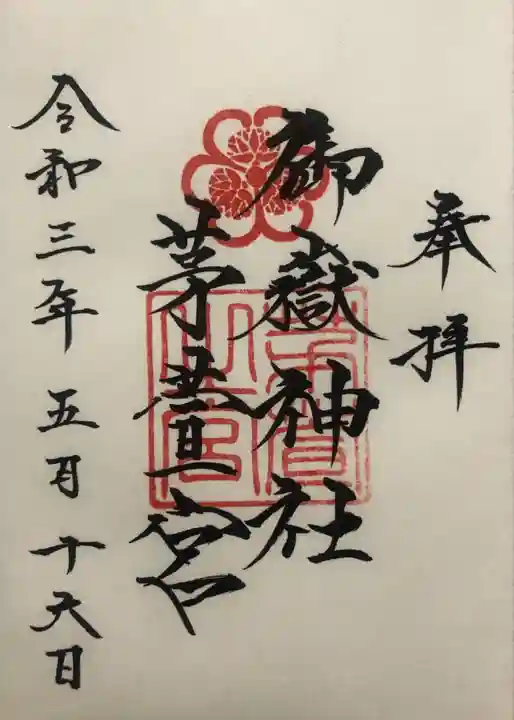 奉拝
御嶽神社
茅萱宮
令和三年五月十六日